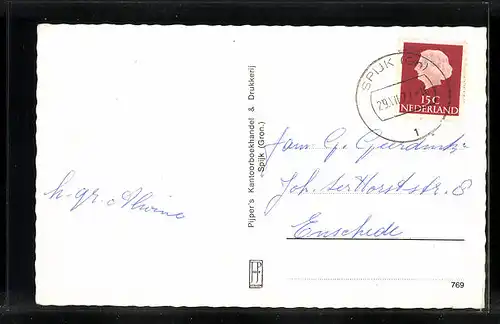 h. gr. Alwine
Pijper's Kantoorboekhandel & Drukkerij
Spijk (Gron.)
SPIJK (Gn)
1
15C
NEDERLAND
Fam. G.
Joh. ter Horststr. 8
Enschede
769